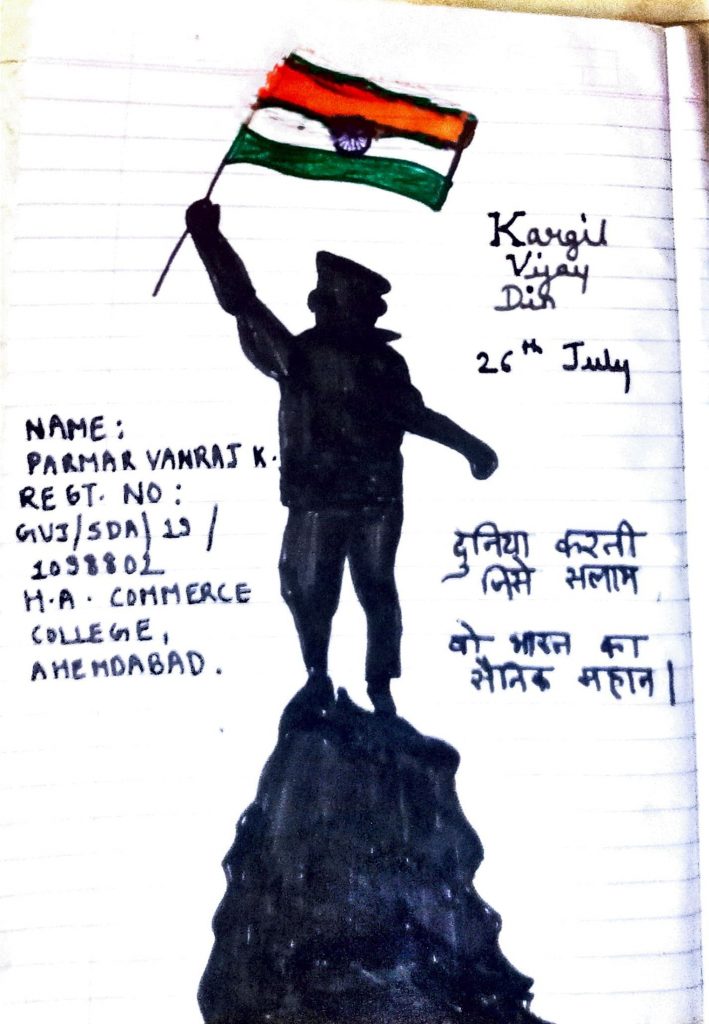 Kargil
Vijay
Din
26th July
NAME:
PARMAR VANRAJ K.
REGT. NO:
GUJ/SDA/19/
1098802
H.A. COMMERCE
COLLEGE,
AHEMDABAD.
दुनिया करती
जिसे सलाम
वो भारत का
सैनिक महान।